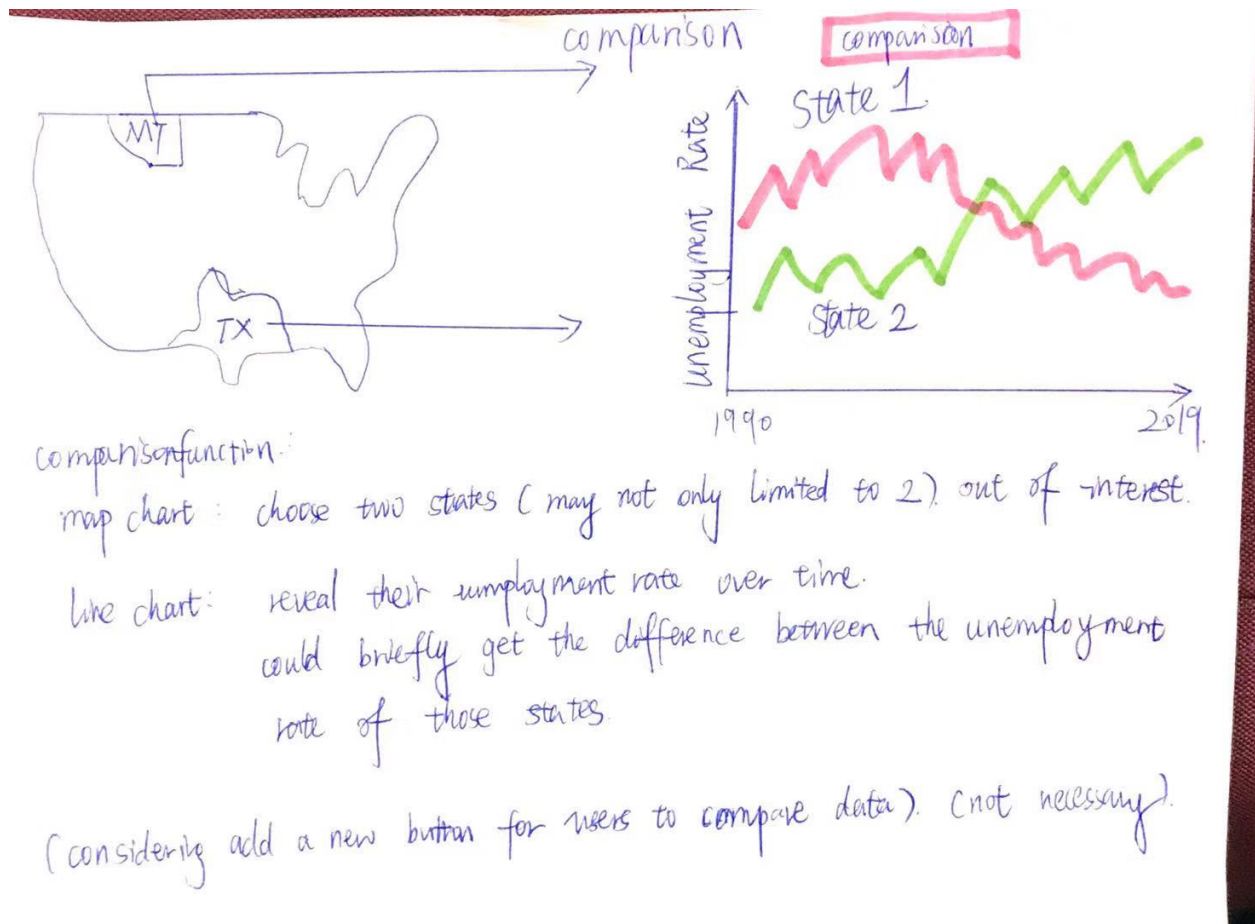 comparison
comparision
MT
TX
State 1
State 2
Unemployment Rate
1990
2019.
comparisonfunction:
map chart: choose two states (may not only limited to 2) out of interest.
line chart: reveal their unmployment rate over time.
could briefly get the difference between the unemployment
rate of those states.
(considering add a new button for users to compare data). (not necessary).